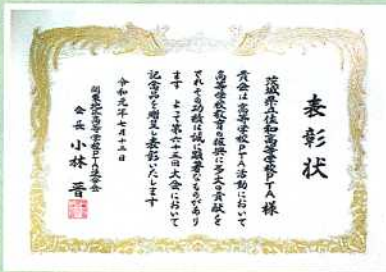 表彰状
茨城県立佐和高等学校PTA 様
貴会は高等学校PTA活動において
高等学校教育の振興に多大の貢献を
されその功績は誠に顕著なものがあり
ます よって第六十五回大会において
記念品を贈呈し表彰いたします
令和元年七月十三日
関東地区高等学校PTA連合会
会長 小林 晋